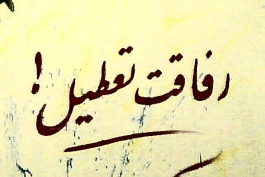 رفاقت تعطیل!